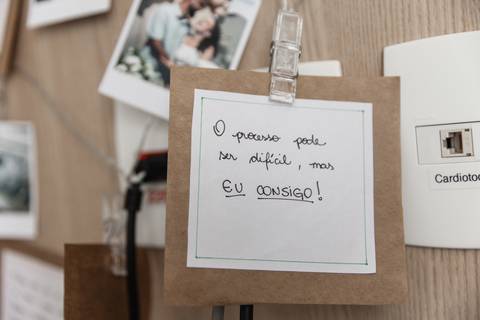 O processo pode
ser difícil, mas
EU CONSIGO!